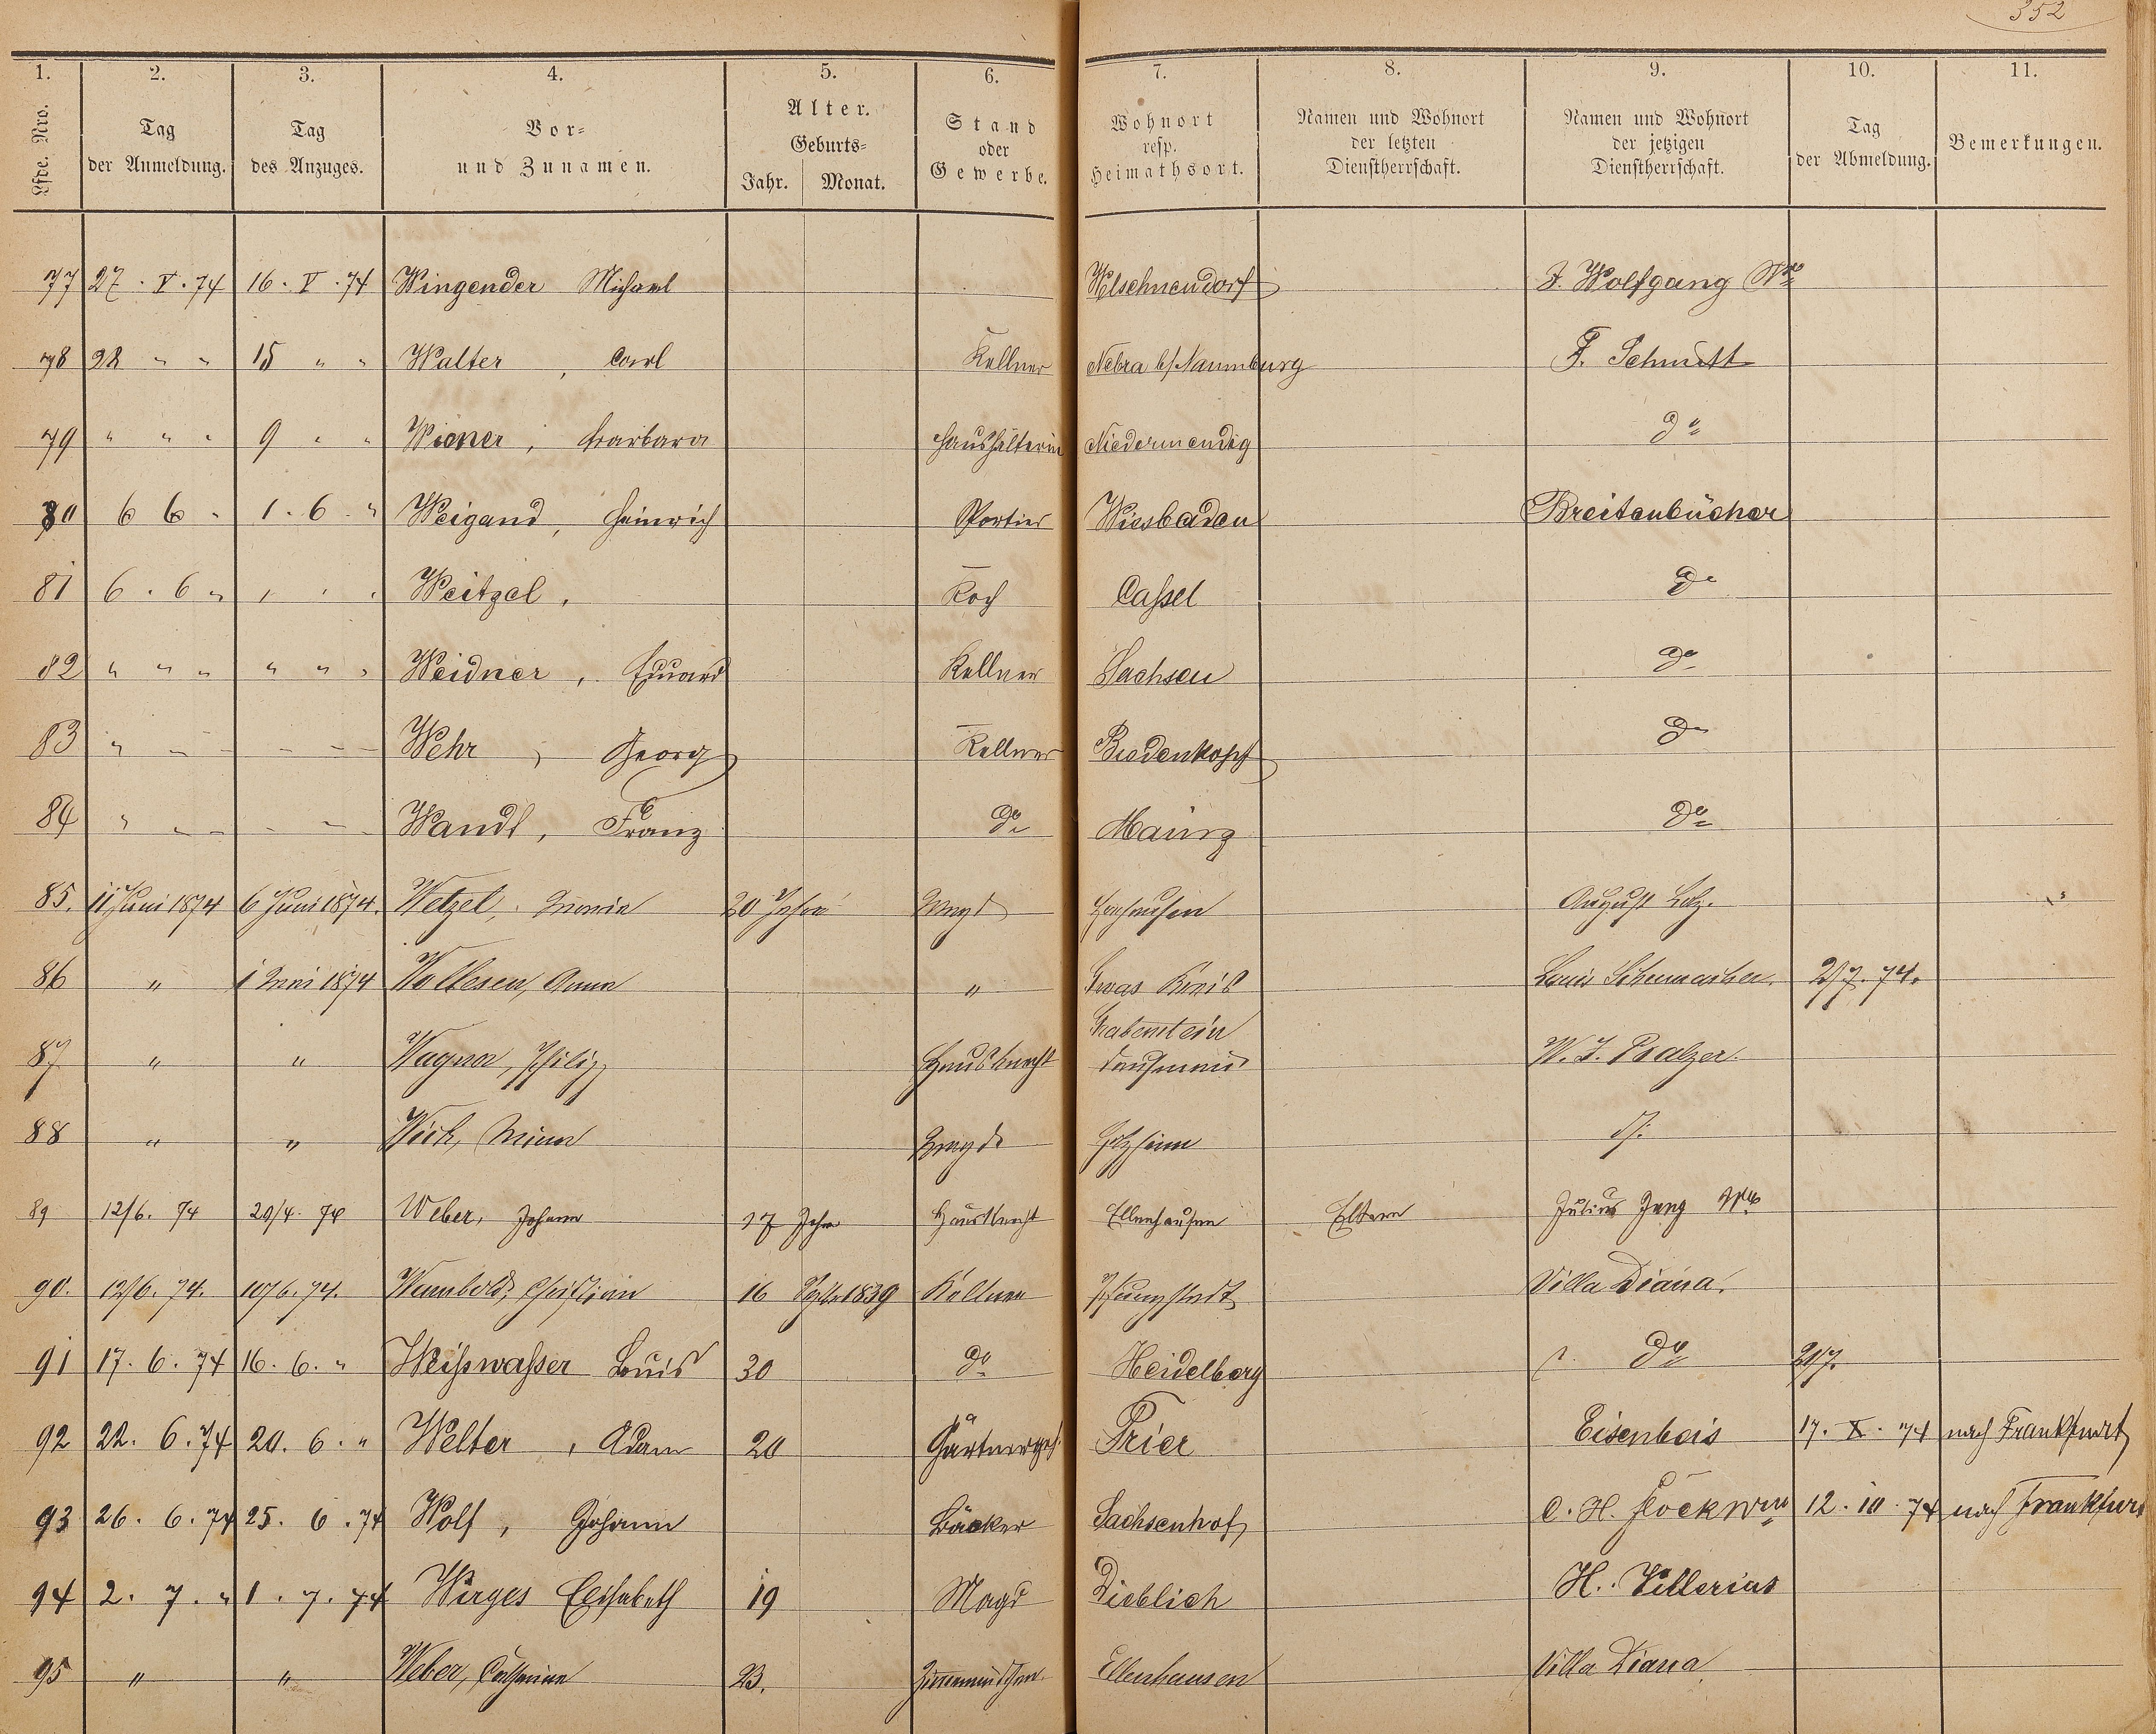 352
1. 2. 3. 4. 5. 6. 7. 8. 9. 10. 11.
Lfde. Nro. Tag der Anmeldung. Tag des Anzuges. Vor- und Zunamen. Alter. Geburts- Jahr. Monat. Stand oder Gewerbe. Wohnort resp. Heimathsort. Namen und Wohnort der letzten Dienstherrschaft. Namen und Wohnort der jetzigen Dienstherrschaft. Tag der Abmeldung. Bemerkungen.
77 27. V. 74 16. V. 74 Wingender Michael Welschneudorf J. Wolfgang Ww
78 28 " " 15 " " Walter, Carl Kellner Nebra b/Naumburg F. Schmitt
79 " " " 9 " " Wioner, Barbara Haushälterin Niedermendig do
80 6 6 " 1. 6 " Weigand, Heinrich Portier Wiesbaden Breitenbücher
81 6. 6 " " " " Weitzel, Koch Cassel do
82 " " " " " " Weidner, Eduard Kellner Sachsen do
83 " " " " " Wehr, Georg Kellner Biedenkopf do
84 " " " " " Wandt, Franz do Mainz do
85. 11 Juni 1874 6 Juni 1874. Wetzel, Maria 20 Jahre Magd August
86 " 1 Juni 1874 Anna " Kreis Louis Schumacher. 2/7. 74.
87 " " Wagner, Philipp Hausknecht Dausenau W. J. Balzer.
88 " " Magd Holzheim
89 12/6. 74 20/4. 74 Weber, Johann 17 Jahre Hausknecht Ellenhausen Eltern Julius Jung Ww
90. 12/6. 74. 10/6. 74. Wambold, Christian 16 Septbr 1839 Kellner Pfungstadt Villa Diana.
91 17. 6. 74 16. 6. " Weißwasser Louis 30 do Heidelberg do 2/7.
92 22. 6. 74 20. 6. " Welter, Adam 20 Gärtnergeh. Trier Eisenbeis 17. X. 74 nach Frankfurt
93 26. 6. 74 25. 6. 74 Wolf, Johann Bäcker Sachsenhof C. H. Flöck Wwe 12. 10. 74 nach Frankfurt
94 2. 7. " 1. 7. 74 Wirges Elisabeth 19 Magd Dieblich H. Villerius
95 " " Weber, Catharine 23. Zimmermädchen Ellenhausen Villa Diana